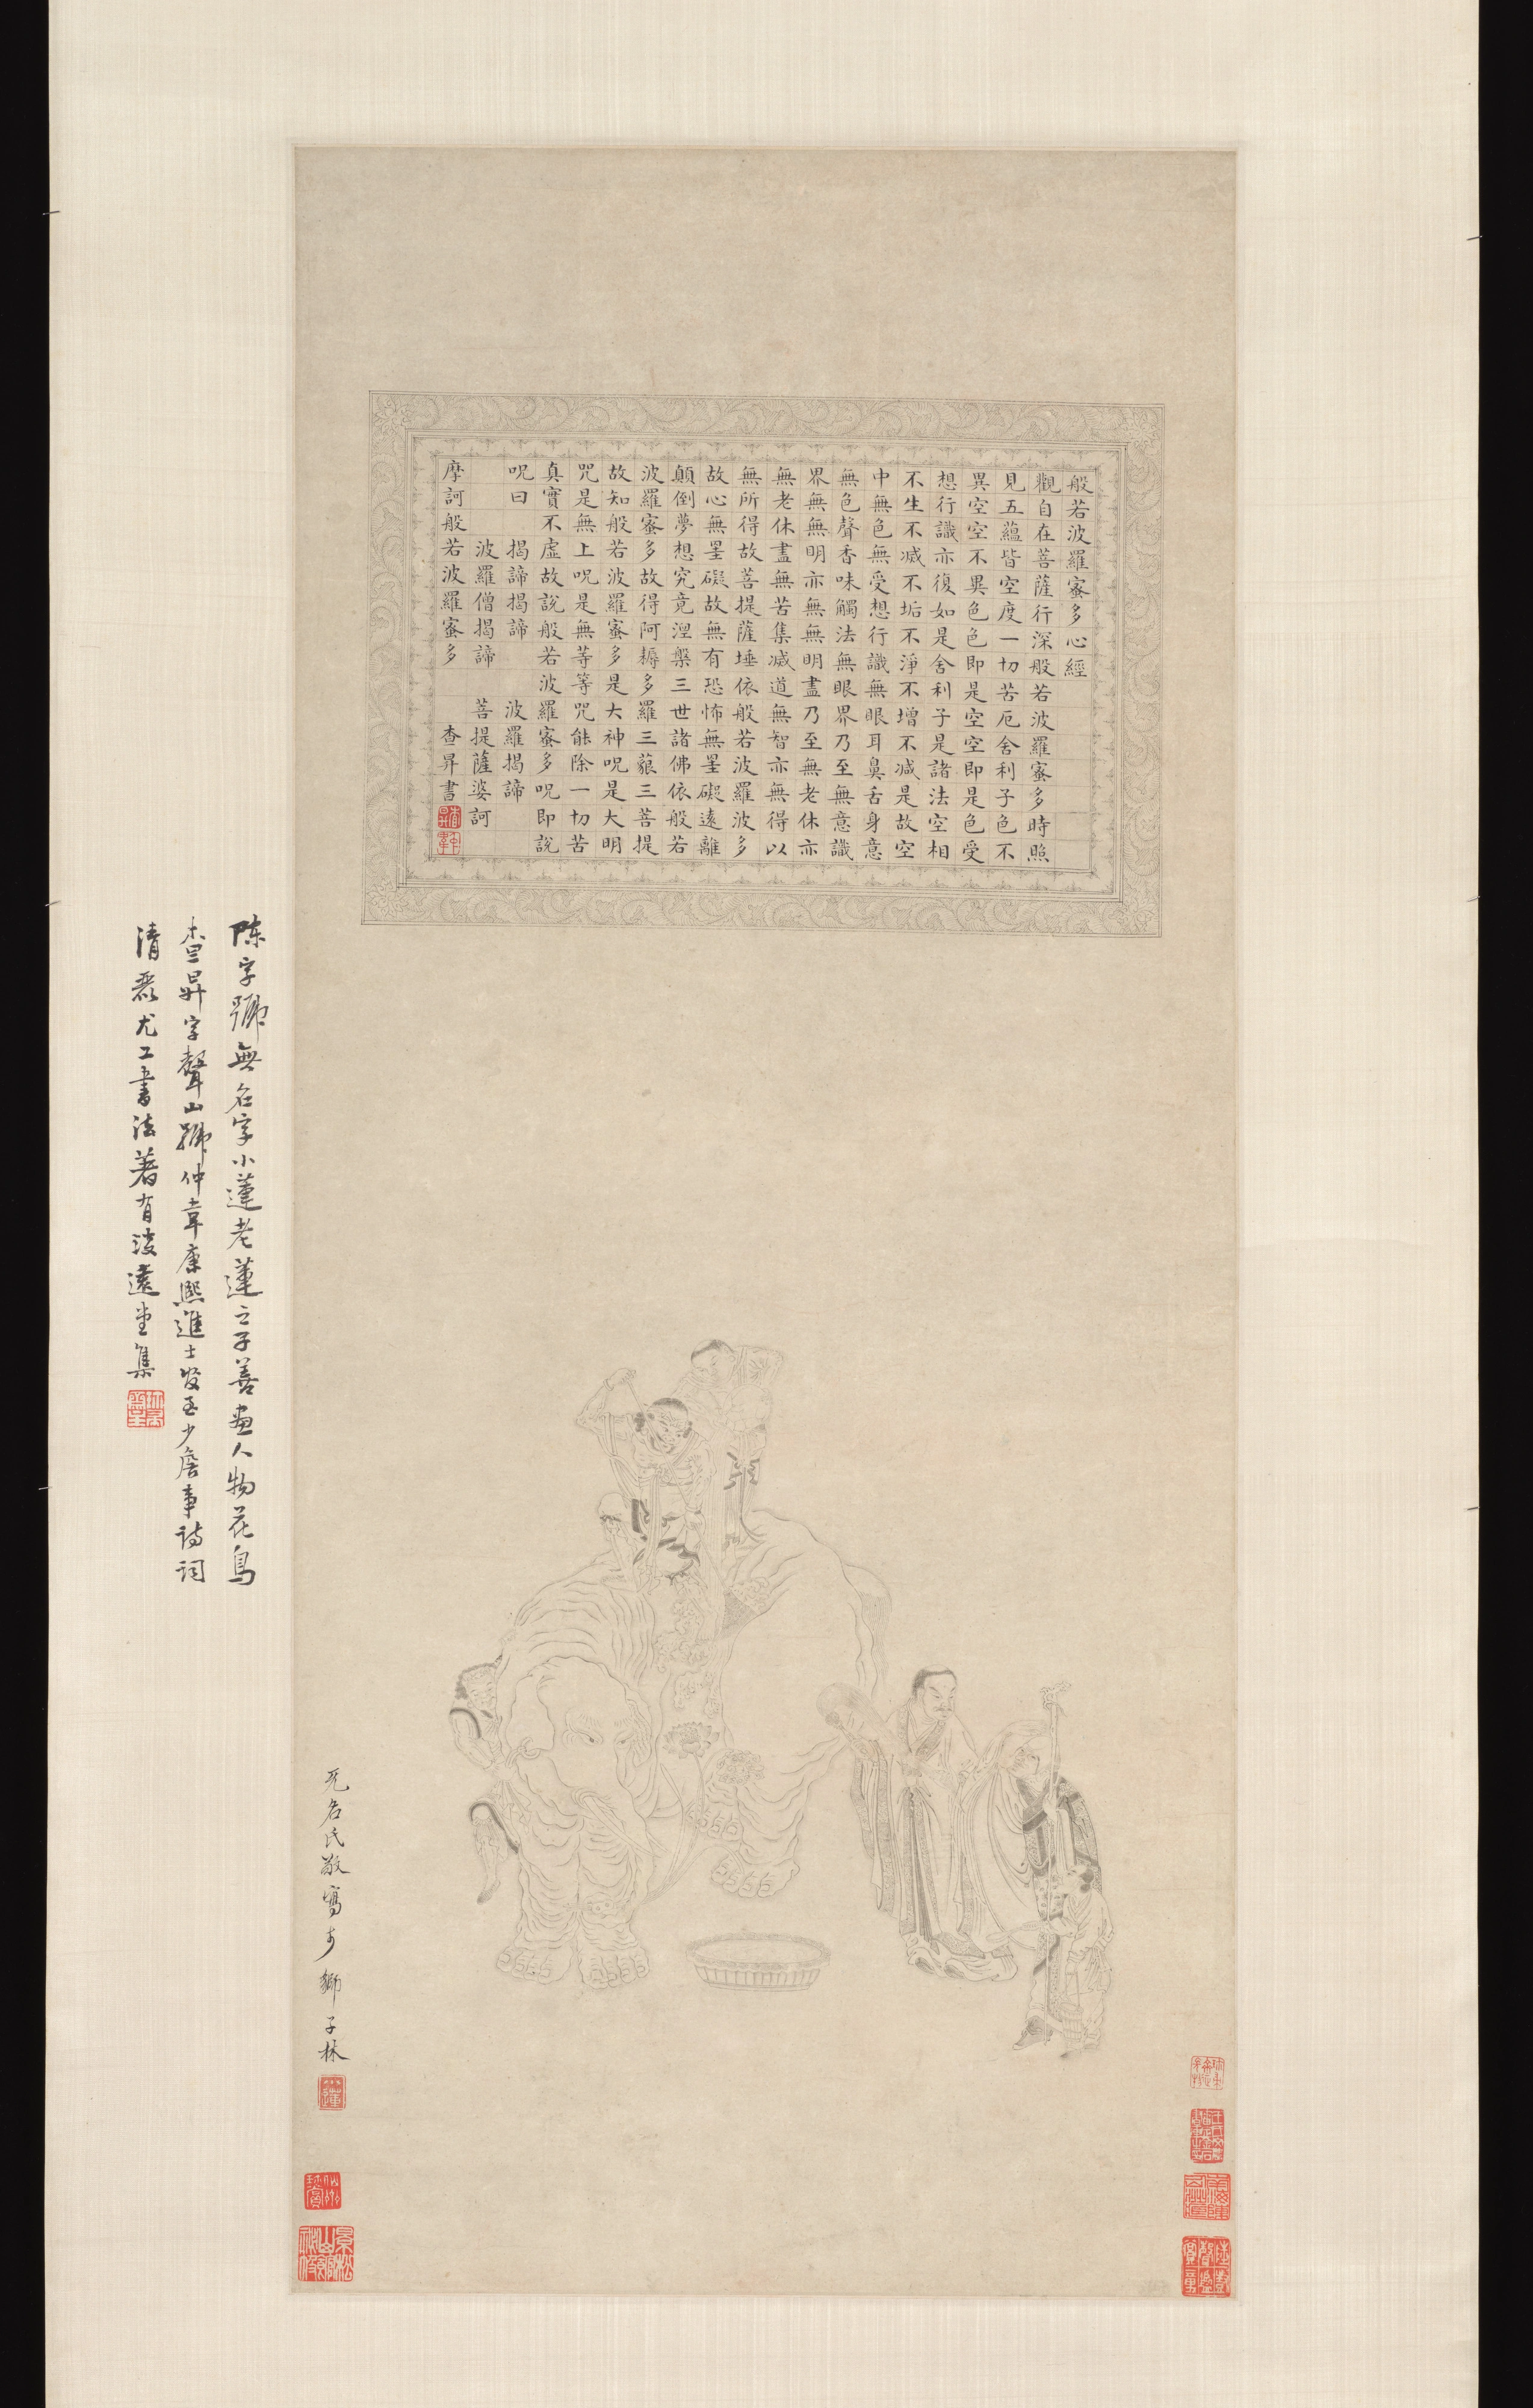 般若波羅蜜多心經
觀自在菩薩行深般若波羅蜜多時照
見五蘊皆空度一切苦厄舍利子色不
異空空不異色色即是空空即是色受
想行識亦復如是舍利子是諸法空相
不生不滅不垢不淨不增不減是故空
中無色無受想行識無眼耳鼻舌身意
無色聲香味觸法無眼界乃至無意識
界無無明亦無無明盡乃至無老休亦
無老休盡無苦集滅道無智亦無得以
無所得故菩提薩埵依般若波羅波多
故心無罣礙故無有恐怖無罣礙遠離
顛倒夢想究竟涅槃三世諸佛依般若
波羅蜜多故得阿耨多羅三藐三菩提
故知般若波羅蜜多是大神呪是大明
咒是無上呪是無等等咒能除一切苦
真實不虛故說般若波羅蜜多呪即說
呪曰 揭諦揭諦 波羅揭諦
波羅僧揭諦 菩提薩婆訶
摩訶般若波羅蜜多 查昇書
无名氏敬寫於獅子林
陈字號無名字小蓮老蓮之子善畫人物花鳥
查昇字聲山號仲韋康熙進士官至少詹事詩詞
清麗尤工書法著有淡遠堂集